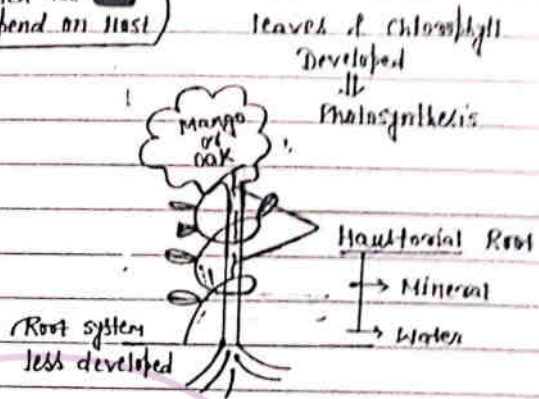 pend on Host
leaves & Chlorophyll
Developed
Photosynthesis
Mango
or
oak
Haustorial Root
→ Mineral
→ Water
Root system
less developed